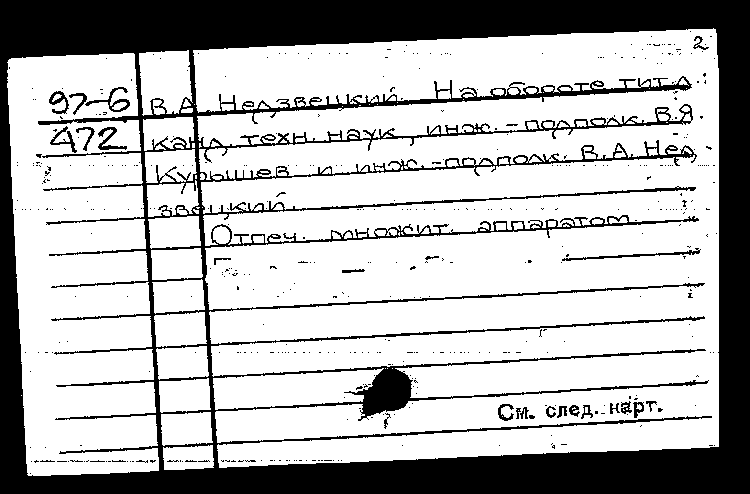 2
97-6 В.А. Недзвецкий. На обороте тит.л.:
472 канд. техн. наук, инж.-подполк. В.Я.
Курышев и инж.-подполк. В.А. Нед-
звецкий.
Отпеч. множит. аппаратом.
См. след. карт.